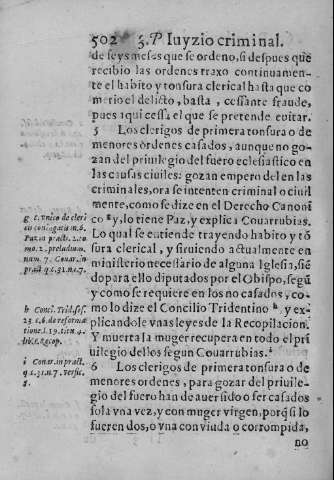 502 3. P. Iuyzio criminal.
de seys meses que se ordeno, si despues que
recibio las ordenes traxo continuamen-
te el habito y tonsura clerical hasta que co
metio el delicto, basta, cessante fraude,
pues aqui cessa el que se pretende euitar.
5 Los clerigos de primera tonsura o de
menores òrdenes casados, aunque no go-
zan del priuilegio del fuero eclesiastico en
las causas ciuiles: gozan empero del en las
criminales, ora se intenten criminal o ciuil
mente, como se dize en el Derecho Canoni
co g y, lo tiene Paz, y explica Couarrubias.
Lo qual se entiende trayendo habito y tõ
sura clerical, y siruiendo actualmente en
ministerio necessario de alguna Iglesia, siẽ
do para ello diputados por el Obispo, segũ
y como se requiere en los no casados, co-
mo lo dize el Concilio Tridentino h y ex-
plicandole vnas leyes de la Recopilacion.
Y muerta la muger recupera en todo el pri
uilegio dellos segun Couarrubias. i
6 Los clerigos de primera tonsura o de
menores ordenes, para gozar del priuile-
gio del fuero han de auer sido o ser casados
sola vna vez, y con muger virgen, porq̃ si lo
fueren dos, o vna con viuda o corrompida,
no
g c. vnico de cleri
cis coniugatis in. 6.
Paz in pract. 2. to
mo. 2. preludium.
num. 7. Couar. in
pract q 31. n. 7.
h Conci. Trid. ses.
23 c. 6. de reforma
tione l. 1. tit. n. 4.
lib. 1. Recop.
i Couar. in pract.
q 31. n. 7. versic.